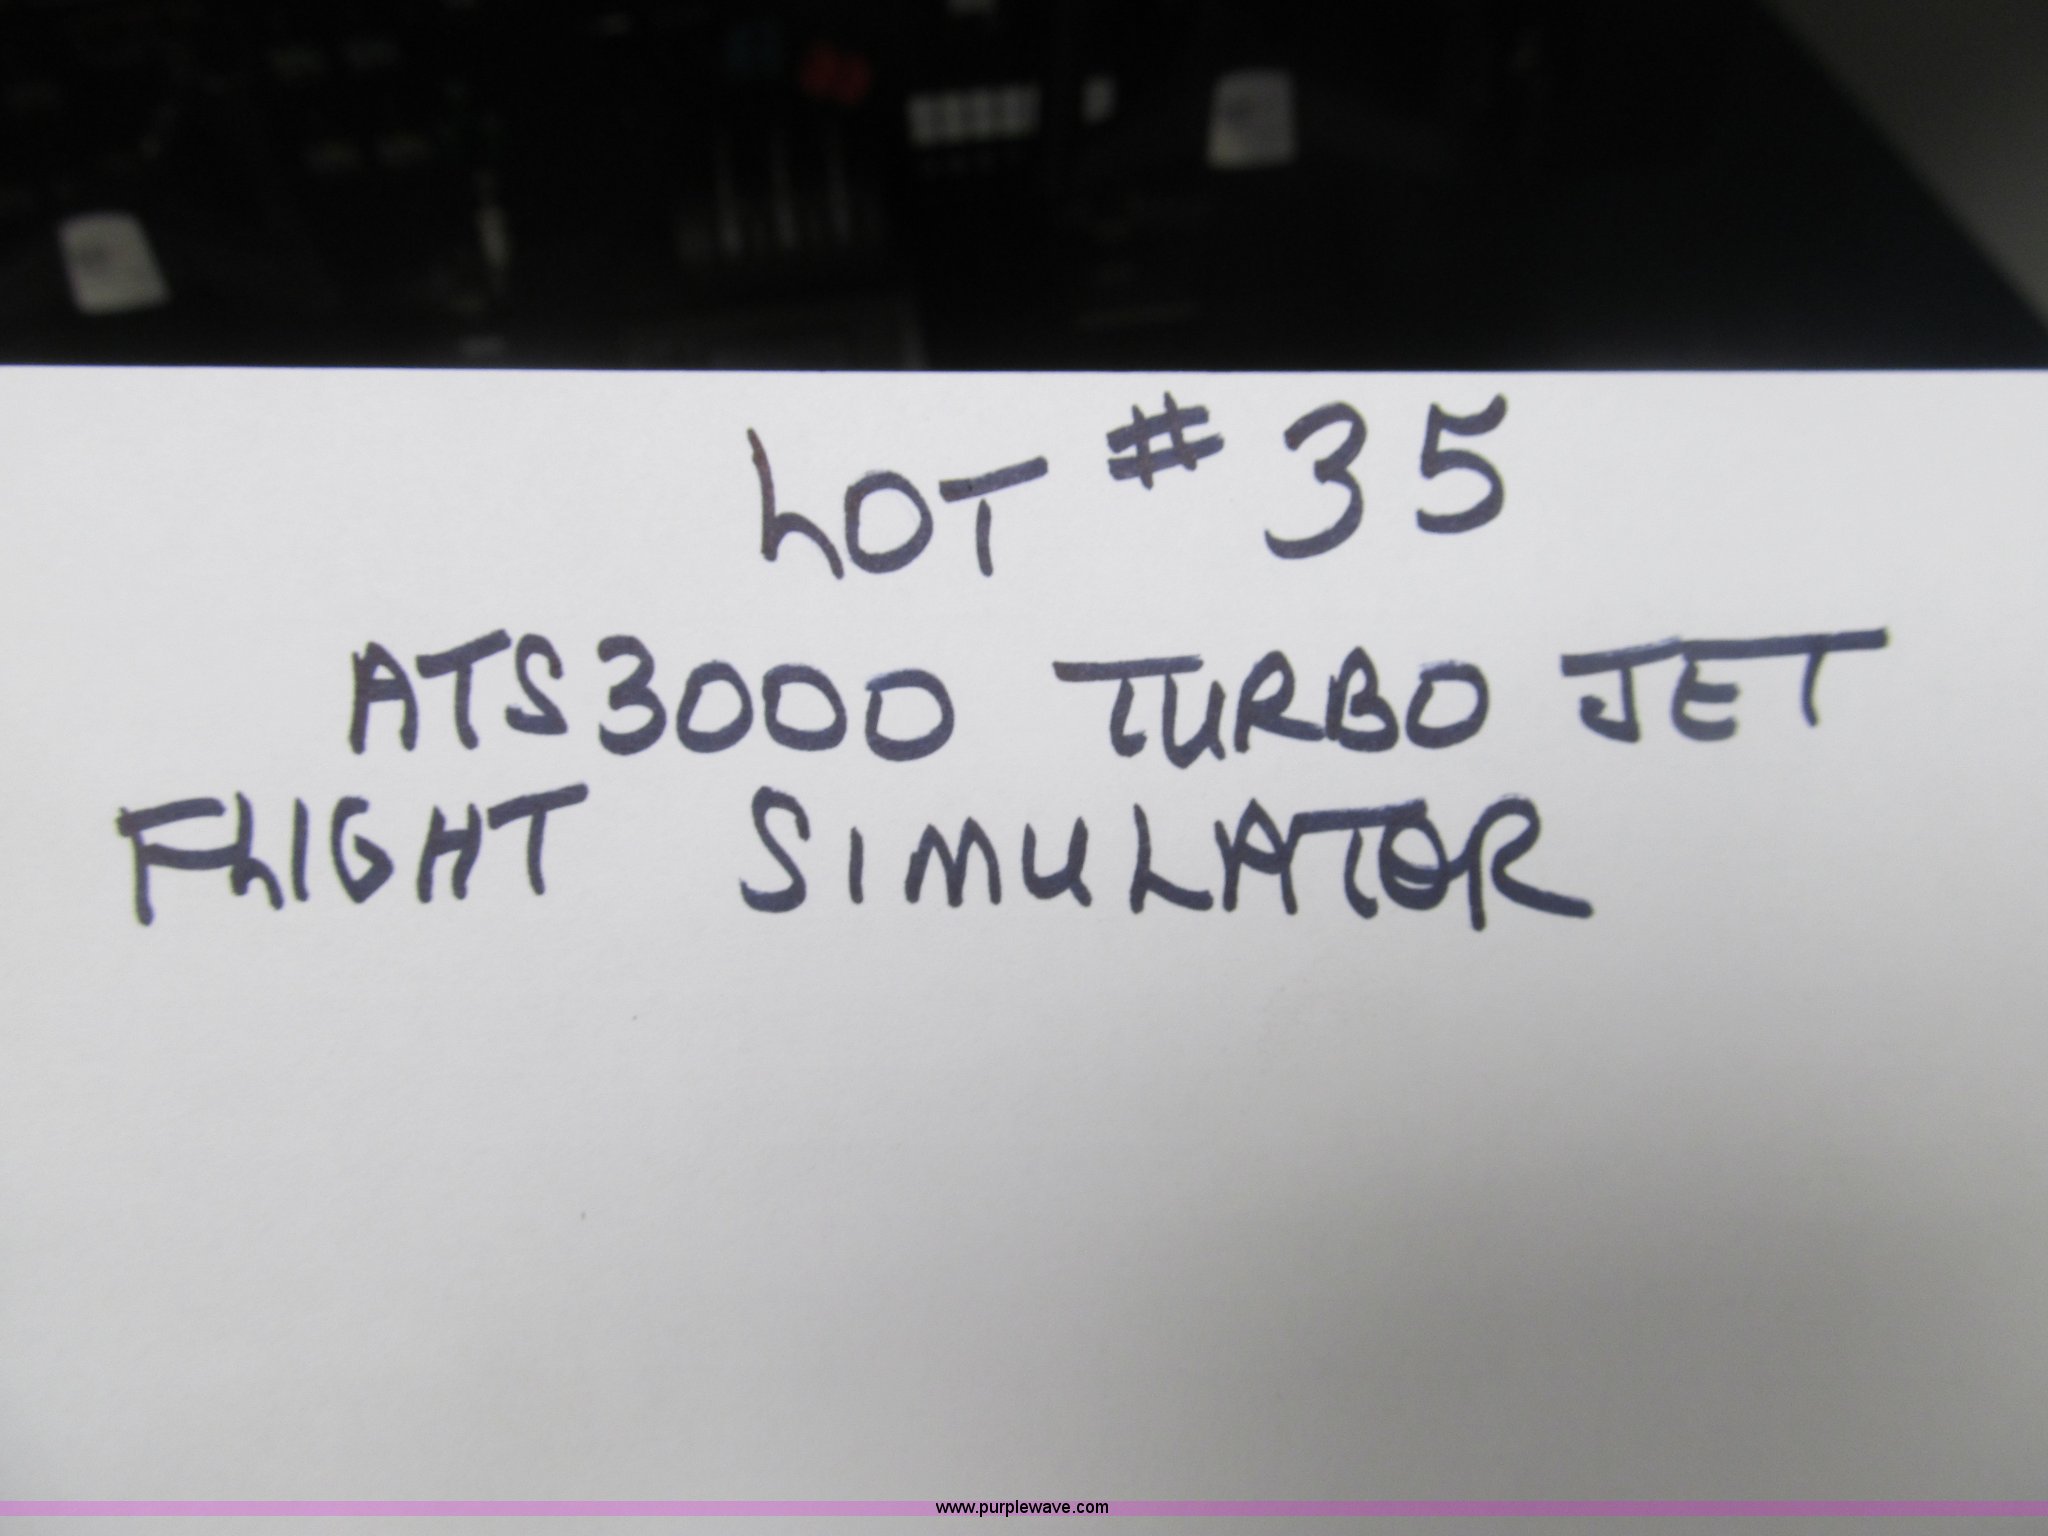 LOT # 35
ATS3000 TURBO JET
FLIGHT SIMULATOR
www.purplewave.com